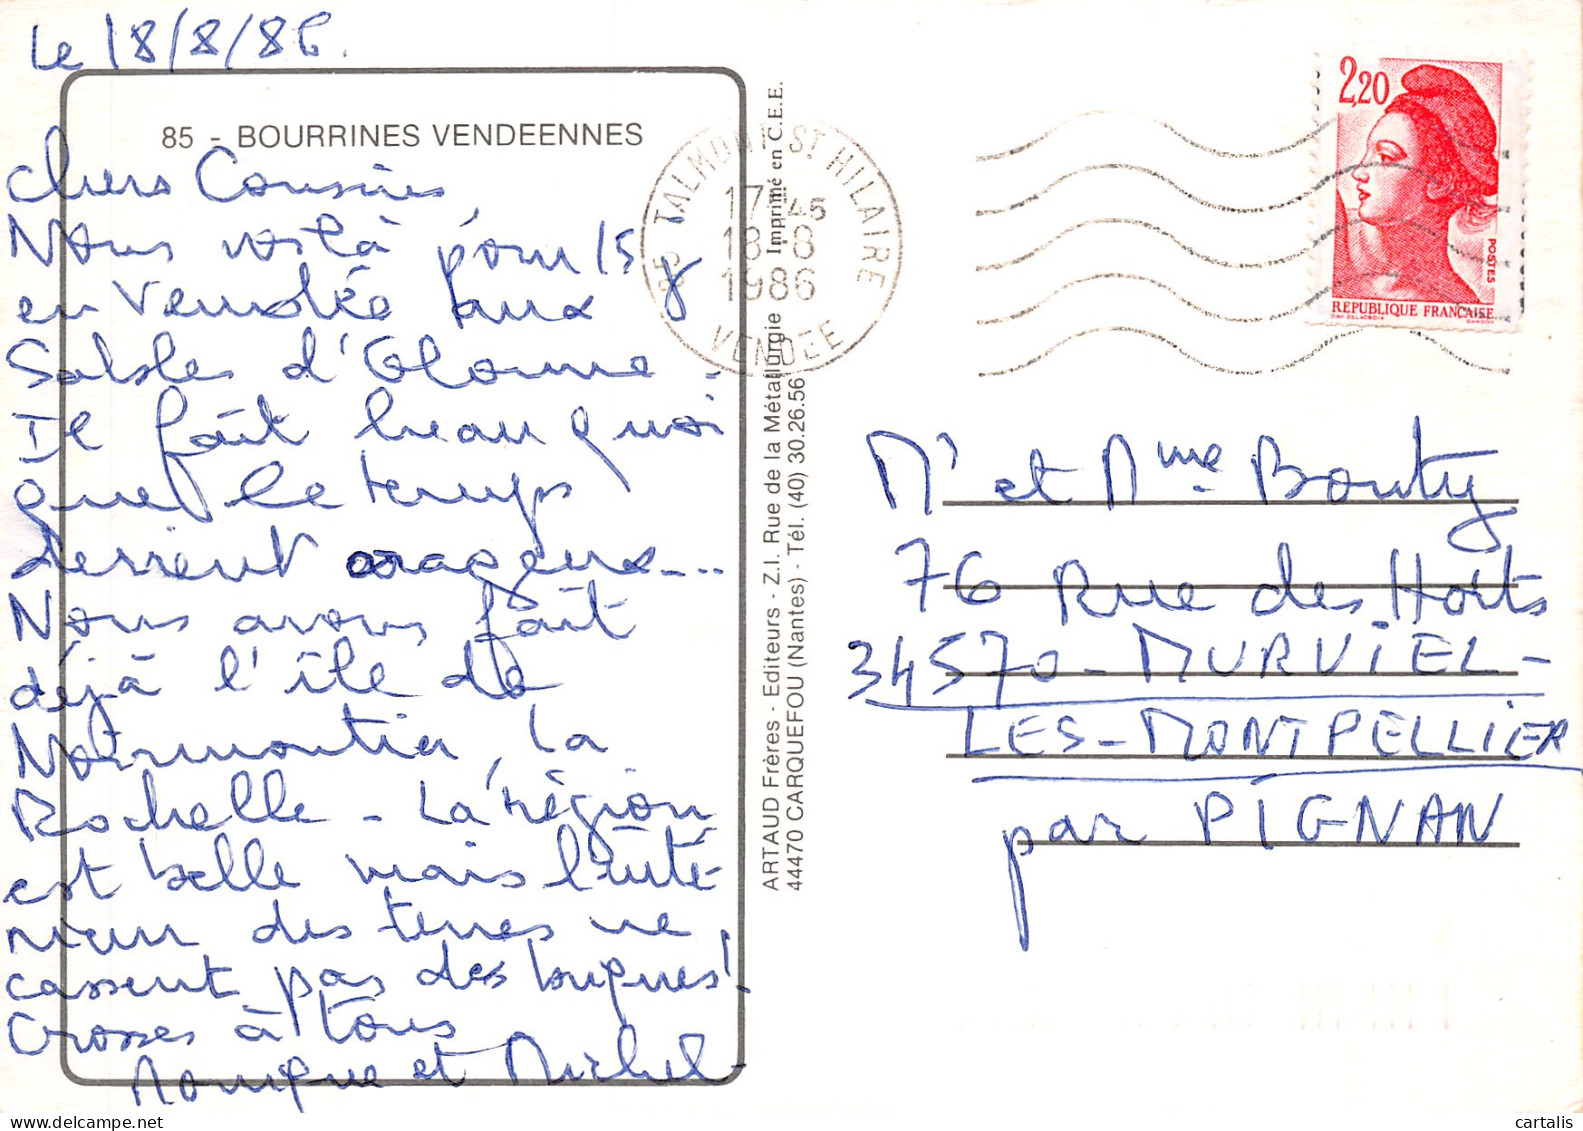 Le 18/8/86.
85 - BOURRINES VENDEENNES
Chers Cousins
Nous voilà pour 15 j
en Vendée aux
Sables d'Olonne.
Il fait beau quoi
que le temps
devient orageux...
Nous avons fait
déjà l'île de
Noirmoutier, la
Rochelle - La région
est belle mais l'inté-
rieur des terres ne
cassent pas des briques!
Grosses à tous
Monique et Michel
ARTAUD Frères - Editeurs - Z.I. Rue de la Métallurgie Imprimé en C.E.E.
44470 CARQUEFOU (Nantes) - Tél. (40) 30.26.56
85 TALMONT ST HILAIRE
17H45
18-8
1986
VENDEE
2,20
POSTES
REPUBLIQUE FRANÇAISE
D'AP. DELACROIX GANDON
Mr et Mme Bouty
76 Rue des Horts
34570 - MURVIEL -
LES - MONTPELLIER
par PIGNAN
cartalis